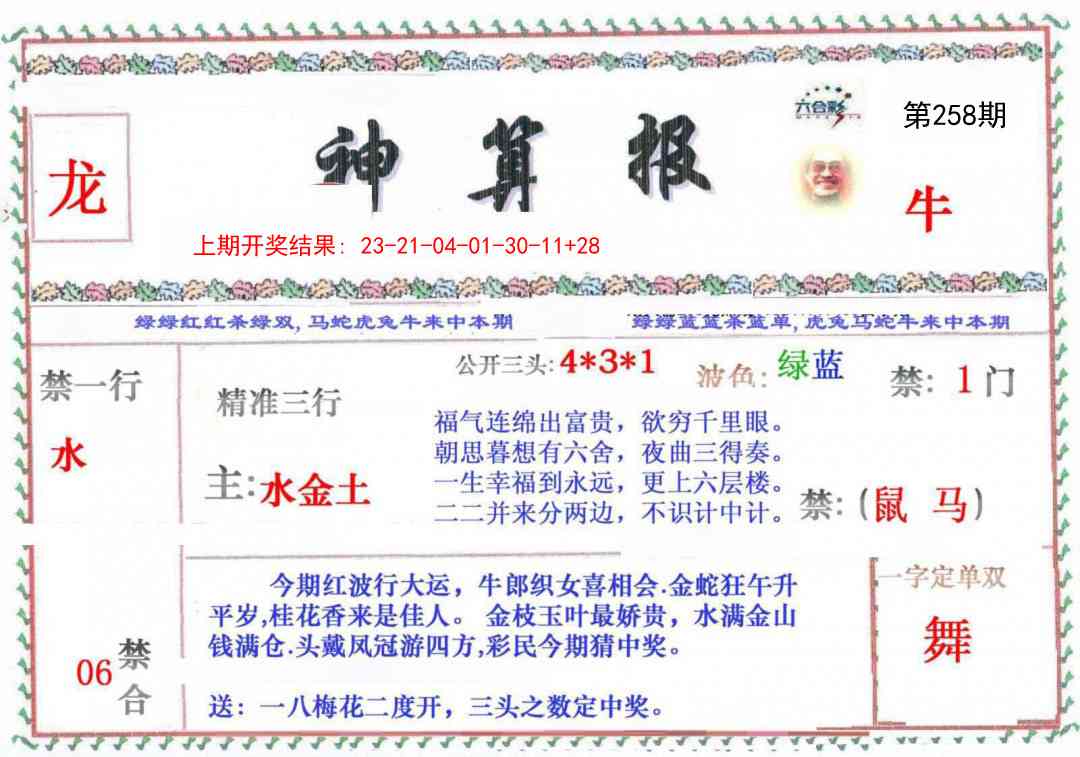 六合彩
第258期
龙
神算报
牛
上期开奖结果：23-21-04-01-30-11+28
绿绿红红杀绿双,马蛇虎兔牛来中本期
绿绿蓝蓝杀蓝单,虎兔马蛇牛来中本期
禁一行
水
精准三行
主:水金土
公开三头:4*3*1
波色:绿蓝
禁:1门
福气连绵出富贵，欲穷千里眼。
朝思暮想有六舍，夜曲三得奏。
一生幸福到永远，更上六层楼。
二二并来分两边，不识计中计。
禁:(鼠 马)
今期红波行大运，牛郎织女喜相会.金蛇狂午升
平岁,桂花香来是佳人。金枝玉叶最娇贵，水满金山
钱满仓.头戴凤冠游四方,彩民今期猜中奖。
送：一八梅花二度开，三头之数定中奖。
06禁合
一字定单双
舞